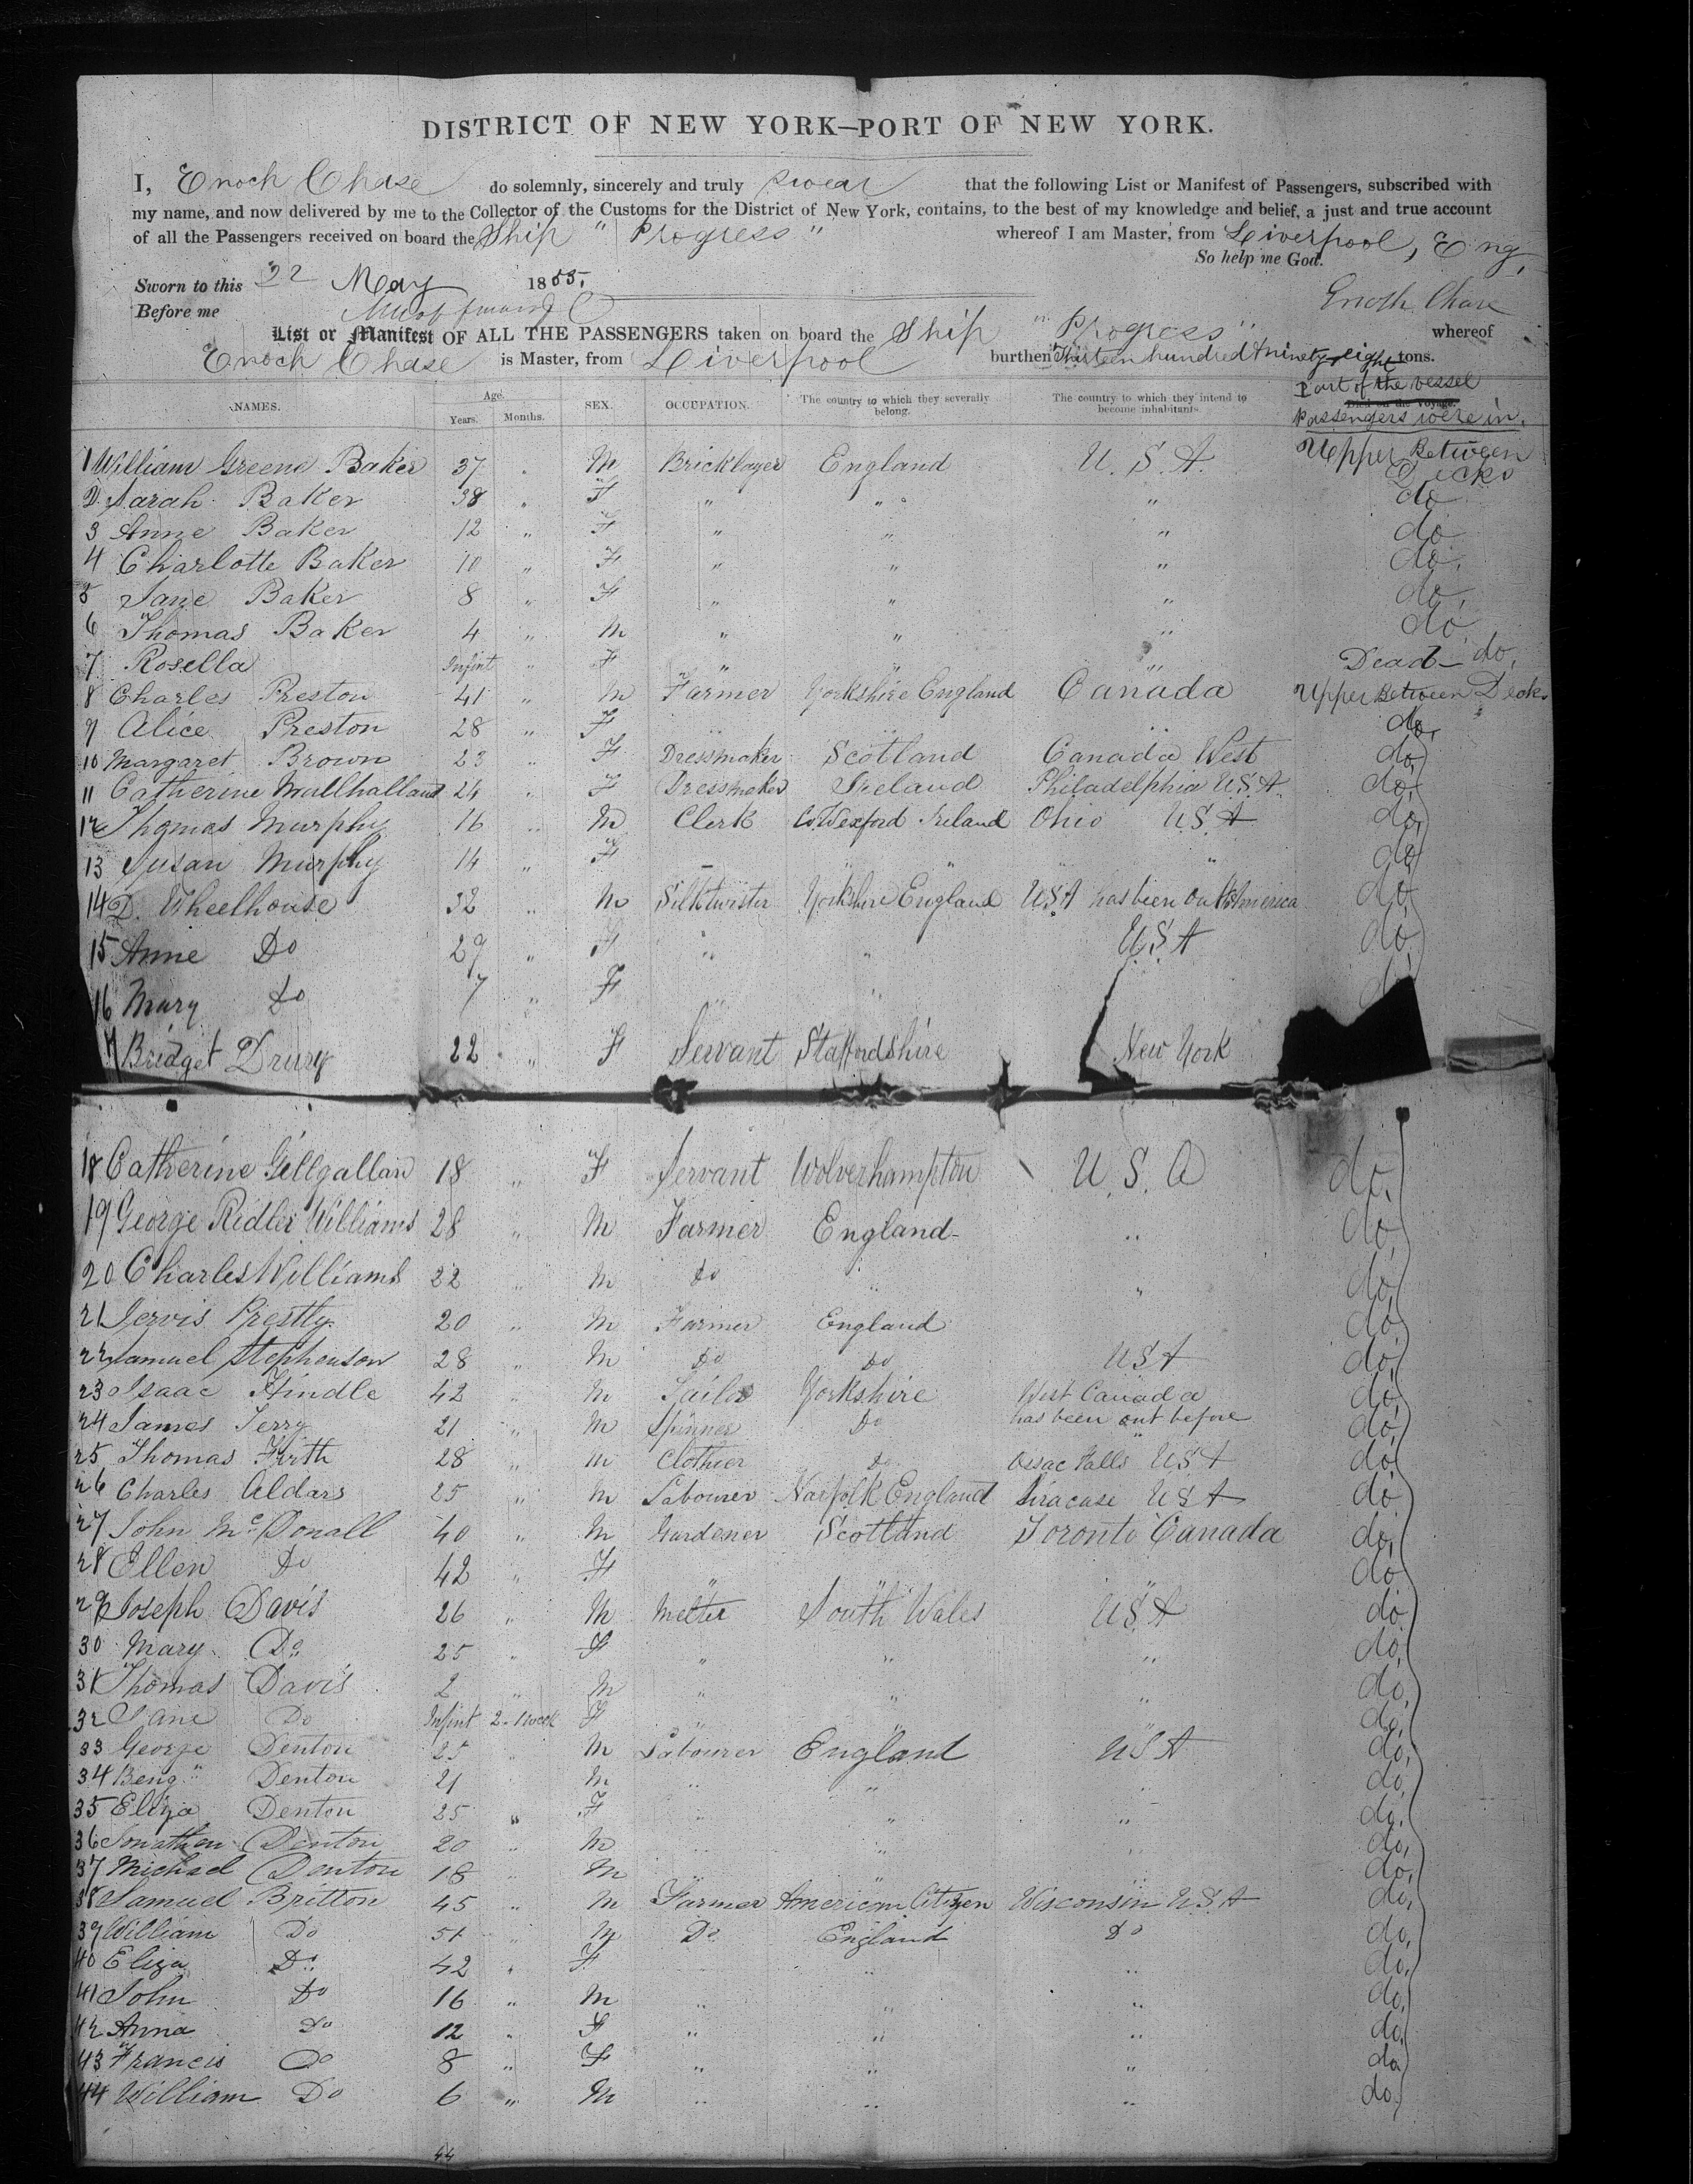 DISTRICT OF NEW YORK—PORT OF NEW YORK.
I, Enoch Chase do solemnly, sincerely and truly swear that the following List or Manifest of Passengers, subscribed with
my name, and now delivered by me to the Collector of the Customs for the District of New York, contains, to the best of my knowledge and belief, a just and true account
of all the Passengers received on board the Ship "Progress" whereof I am Master, from Liverpool, Eng,
So help me God.
Sworn to this 22 May 1855.
Enoch Chase
Before me
List or Manifest OF ALL THE PASSENGERS taken on board the Ship "Progress" whereof
Enoch Chase is Master, from Liverpool burthen Thirteen hundred & ninety eight tons.
NAMES. Age. Years. Months. SEX. OCCUPATION. The country to which they severally belong. The country to which they intend to become inhabitants. Died on the voyage. Part of the vessel Passengers were in.
1 William Greene Baker 37 " M Bricklayer England U.S.A. Upper Between Decks
2 Sarah Baker 38 " F " " " do
3 Anne Baker 12 " F " " " do
4 Charlotte Baker 10 " F " " " do.
5 Jane Baker 8 " F " " " do,
6 Thomas Baker 4 " M " " " do
7 Rosella Infint " F " " " Dead — do.
8 Charles Preston 41 " M Farmer Yorkshire England Canada Upper Between Decks
9 Alice Preston 28 " F " " " do,
10 Margaret Brown 23 " F Dressmaker Scotland Canada West do,
11 Catherine Mullhalland 24 " F Dressmaker Ireland Philadelphia U.S.A. do,
12 Thomas Murphy 16 " M Clerk Co Wexford Ireland Ohio USA do,
13 Susan Murphy 14 " F – " " " " do
14 D. Wheelhouse 32 " M Silktwister Yorkshire England USA has been out America do
15 Anne Do 29 " F " " USA do
16 Mary Do 7 " F " " do
17 Bridget Drury 22 " F Servant Staffordshire New York
18 Catherine Gillgallan 18 " F Servant Wolverhampton U.S.A do,
19 George Ridler Williams 28 " M Farmer England - " do,
20 Charles Williams 22 " M Do " " do,
21 Jervis Prestly 20 " M Farmer England do,
22 Samuel Stephenson 28 " M Do Do USA do,
23 Isaac Hindle 42 " M Tailor Yorkshire West Canada do,
24 James Terry 21 " M Spinner Do has been out before do,
25 Thomas Firth 28 " M Clothier Do Ossac Falls USA do
26 Charles Aldars 25 " M Labourer Narfolk England Siracuse USA do
27 John McDonall 40 " M Gardener Scotland Toronto Canada do,
28 Ellen Do 42 " F " " " do
29 Joseph Davis 26 " M Melter South Wales USA do
30 Mary Do 25 " F " " " do,
31 Thomas Davis 2 " M " " " do,
32 Jane Do Infint 2 - 1 week F " " " do,
33 George Denton 25 " M Labourer England USA do,
34 Benj" Denton 21 " M " " " do,
35 Eliza Denton 25 " F " " " do,
36 Jonathan Denton 20 " M " " " do,
37 Michael Denton 18 M " " " do,
38 Samuel Britton 45 " M Farmer American Citizen Wisconsin U.S.A do,
39 William Do 51 " M Do England Do do,
40 Eliza Do 42 " F " " " do,
41 John Do 16 " M " " " do,
42 Anna Do 12 " F " " " do,
43 Francis Do 8 " F " " " do
44 William Do 6 " M " " " do.
44